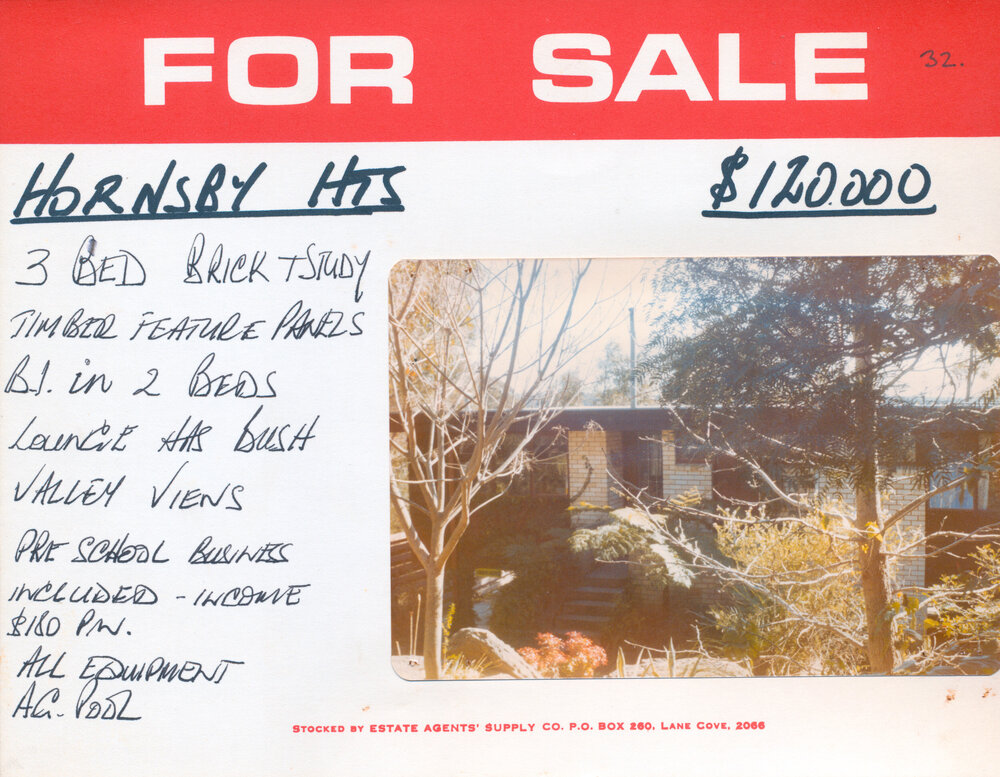 FOR SALE
32.
HORNSBY HTS
$120.000
3 BED BRICK + STUDY
TIMBER FEATURE PANELS
B.I. in 2 BEDS
LOUNGE HAS BUSH
VALLEY VIEWS
PRE SCHOOL BUSINESS
INCLUDED - INCOME
$180 P/W.
ALL EQUIPMENT
A.G. POOL
STOCKED BY ESTATE AGENTS' SUPPLY CO. P.O. BOX 260, LANE COVE, 2066